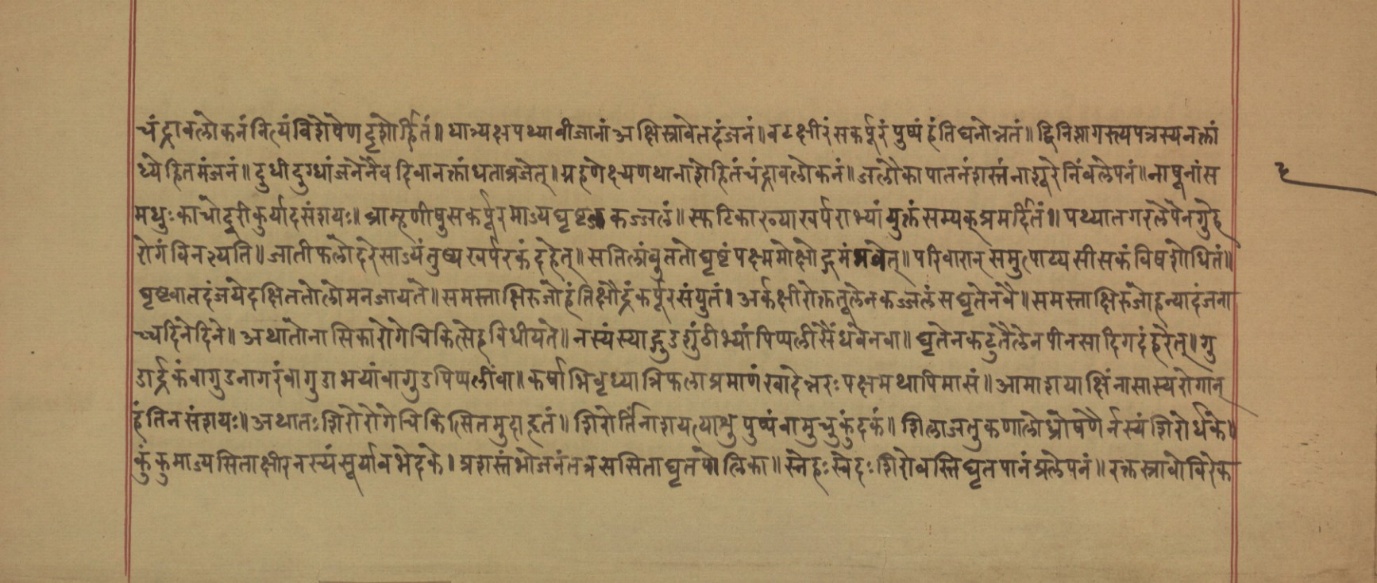 चंद्रावलोकनं नित्यं विशेषेण दृशोर्हितं॥ धात्र्यक्षपथ्याबीजानां अक्षिस्रावेतदंजनं॥ वटक्षीरं सकर्पूरं पुष्पं हंति घनोन्नतं॥ द्विनिशागस्त्यपत्रस्य नक्तां
ध्ये हितमंजनं॥ दुधीदुग्धांजनेनैव दिवानक्तांधता व्रजेत्॥ ग्रहणेक्ष्यण हितं चंद्रावलोकनं॥ जलौकापातनं शस्तं नाशूरे निंबलेपनं॥
काचो दूरीकुर्यादसंशयः॥ ब्राम्हणीपुसकर्पूरमाज्यघृष्ट कज्जलं॥ स्फटिकाख्याखर्पराभ्यां युक्तं सम्यक् प्रमर्दितं॥ पथ्यातगरलेपेन गुहे
रोगं विनश्यति॥ जातीफलोदरे साज्यं तुष्यखर्परकं दहेत्॥ घृष्टं पक्ष्ममोक्षोद्गमं भवेत्॥ परिवारान् समुत्पाट्य सीसकं विषशोधितं॥
घृष्ट्वा तदंजयेदक्षि ततो लोम न जायते॥ समस्ताक्षिरुजो हंति क्षौद्रं कर्पूरसंयुतं॥ अर्कक्षीरोक्ततूलेन कज्जलं सघृतेन वै॥ समस्ताक्षिरुजो हन्यादंजना
च्च दिने दिने॥ अथातो नासिकारोगे चिकित्सेह विधीयते॥ नस्यं स्याद्गुडशुंठीभ्यां पिप्पलीसैंधवेन वा॥ घृतेन कटुतैलेन पीनसादिगदं हरेत्॥ गु
डार्द्रकं वा गुडनागरं वा गुडाभयां वा गुडपिप्पलीं वा॥ कर्षाभिवृध्या त्रिफलाप्रमाणं खादेन्नरः पक्षमथापि मासं॥ आमाशयाक्षिंनासास्यरोगान्
हंति न संशयः॥ अथातः शिरोरोगे चिकित्सितमुदाहृतं॥ शिरोर्तिं नाशयत्याशु पुष्पं वा मुचुकुंदकं॥ शिलाजतुकणालोध्रोषणैर्नस्यं शिरोर्धके॥
कुंकुमाज्यसिताक्षीरनस्यं सूर्यावभेदके॥ प्रशस्तं भोजनं तत्र ससिताघृतपोलिका॥ स्नेहः स्वेदः शिरोबस्ति घृतपानं प्रलेपनं॥ रक्तस्रावो विरेक